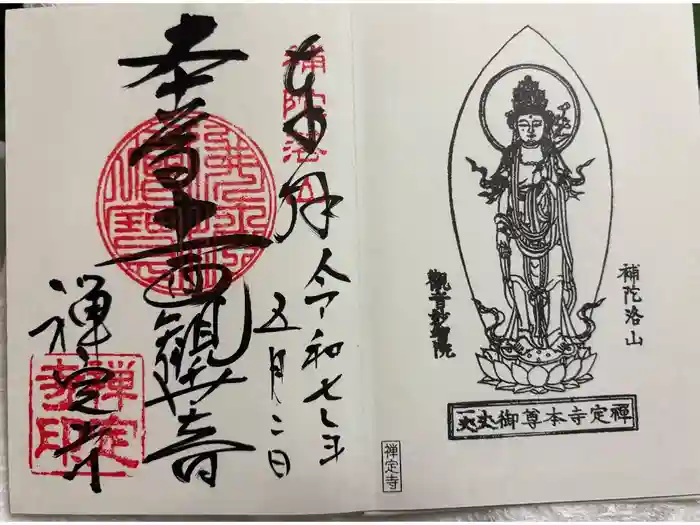 補陀洛山
奉拝
令和七年
五月二日
本尊十一面観世音
禅定寺
補陀洛山
觀音妙智院
禪定寺本尊御
禅定寺